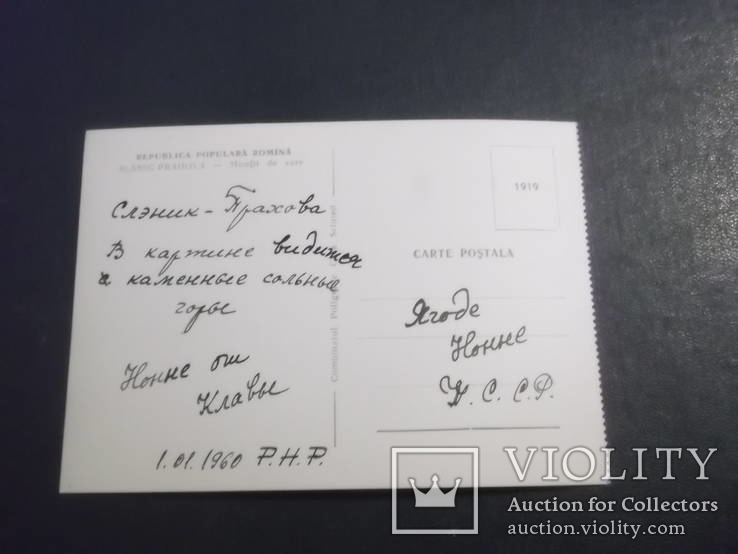 REPUBLICA POPULARĂ ROMÎNĂ
SLĂNIC PRAHOVA — Munții de sare
Слэник - Прахова
В картине видится
каменные сольные
горы
Нонне от
Клавы
1.01.1960 Р.Н.Р.
Combinatul Poligrafic Casa Scînteii
1919
CARTE POȘTALĂ
Ягоде
Нонне
С.С.Р.
VIOLITY
Auction for Collectors
auction.violity.com